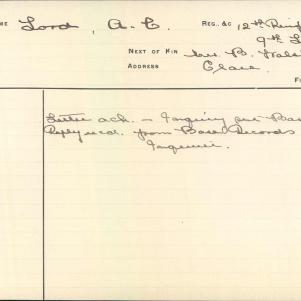 ME Lord, A. C. REG. &C 12th Reinf
9th L
NEXT OF KIN Mrs B.
ADDRESS Clare
Letter ack. – Inquiry Bas
Reply recd. from Base Records
Inquirer.